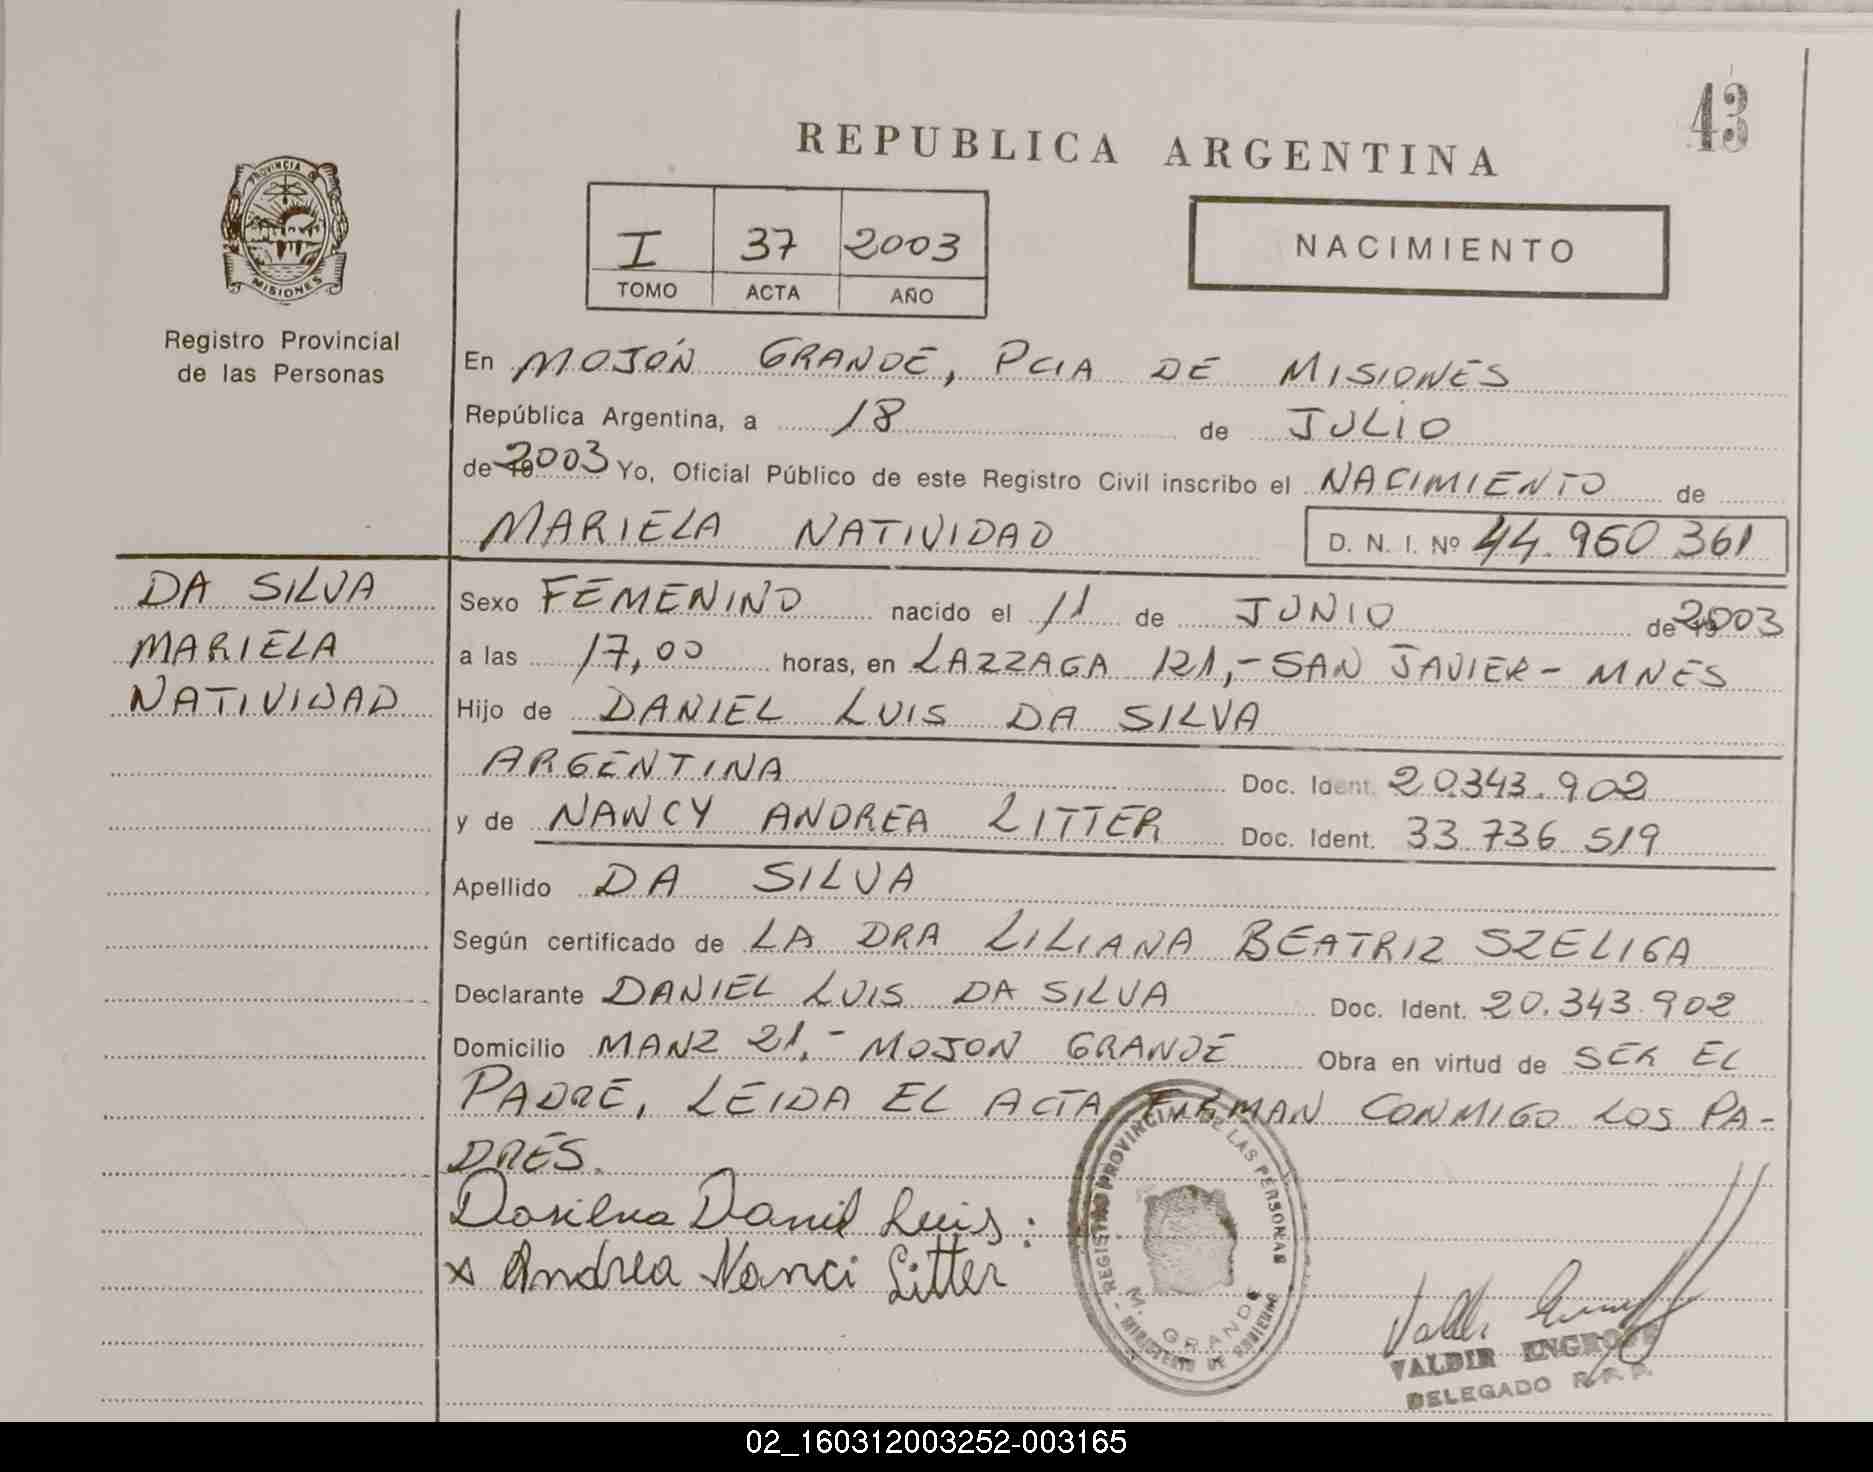 43
REPUBLICA ARGENTINA
PROVINCIA DE
MISIONES
I 37 2003
TOMO ACTA AÑO
NACIMIENTO
Registro Provincial
de las Personas
En MOJÓN GRANDE, PCIA DE MISIONES
República Argentina, a 18 de JULIO
de 2003 Yo, Oficial Público de este Registro Civil inscribo el NACIMIENTO de
MARIELA NATIVIDAD D. N. I. Nº 44.960 361
DA SILVA
MARIELA
NATIVIDAD
Sexo FEMENINO nacido el 11 de JUNIO de 2003
a las 17,00 horas, en LAZZAGA 121,- SAN JAVIER - MNES
Hijo de DANIEL LUIS DA SILVA
ARGENTINA Doc. Ident. 20.343.902
y de NANCY ANDREA LITTER Doc. Ident. 33.736 519
Apellido DA SILVA
Según certificado de LA DRA LILIANA BEATRIZ SZELIGA
Declarante DANIEL LUIS DA SILVA Doc. Ident. 20.343.902
Domicilio MANZ 21.- MOJON GRANDE Obra en virtud de SER EL
PADRE, LEIDA EL ACTA FIRMAN CONMIGO LOS PA-
DRES.
Dasilva Daniel Luis
x Andrea Nanci Litter
REGISTRO PROVINCIAL DE LAS PERSONAS
M. GRANDE
MINISTERIO DE GOBIERNO
VALDIR
DELEGADO R.P.P.
02_160312003252-003165